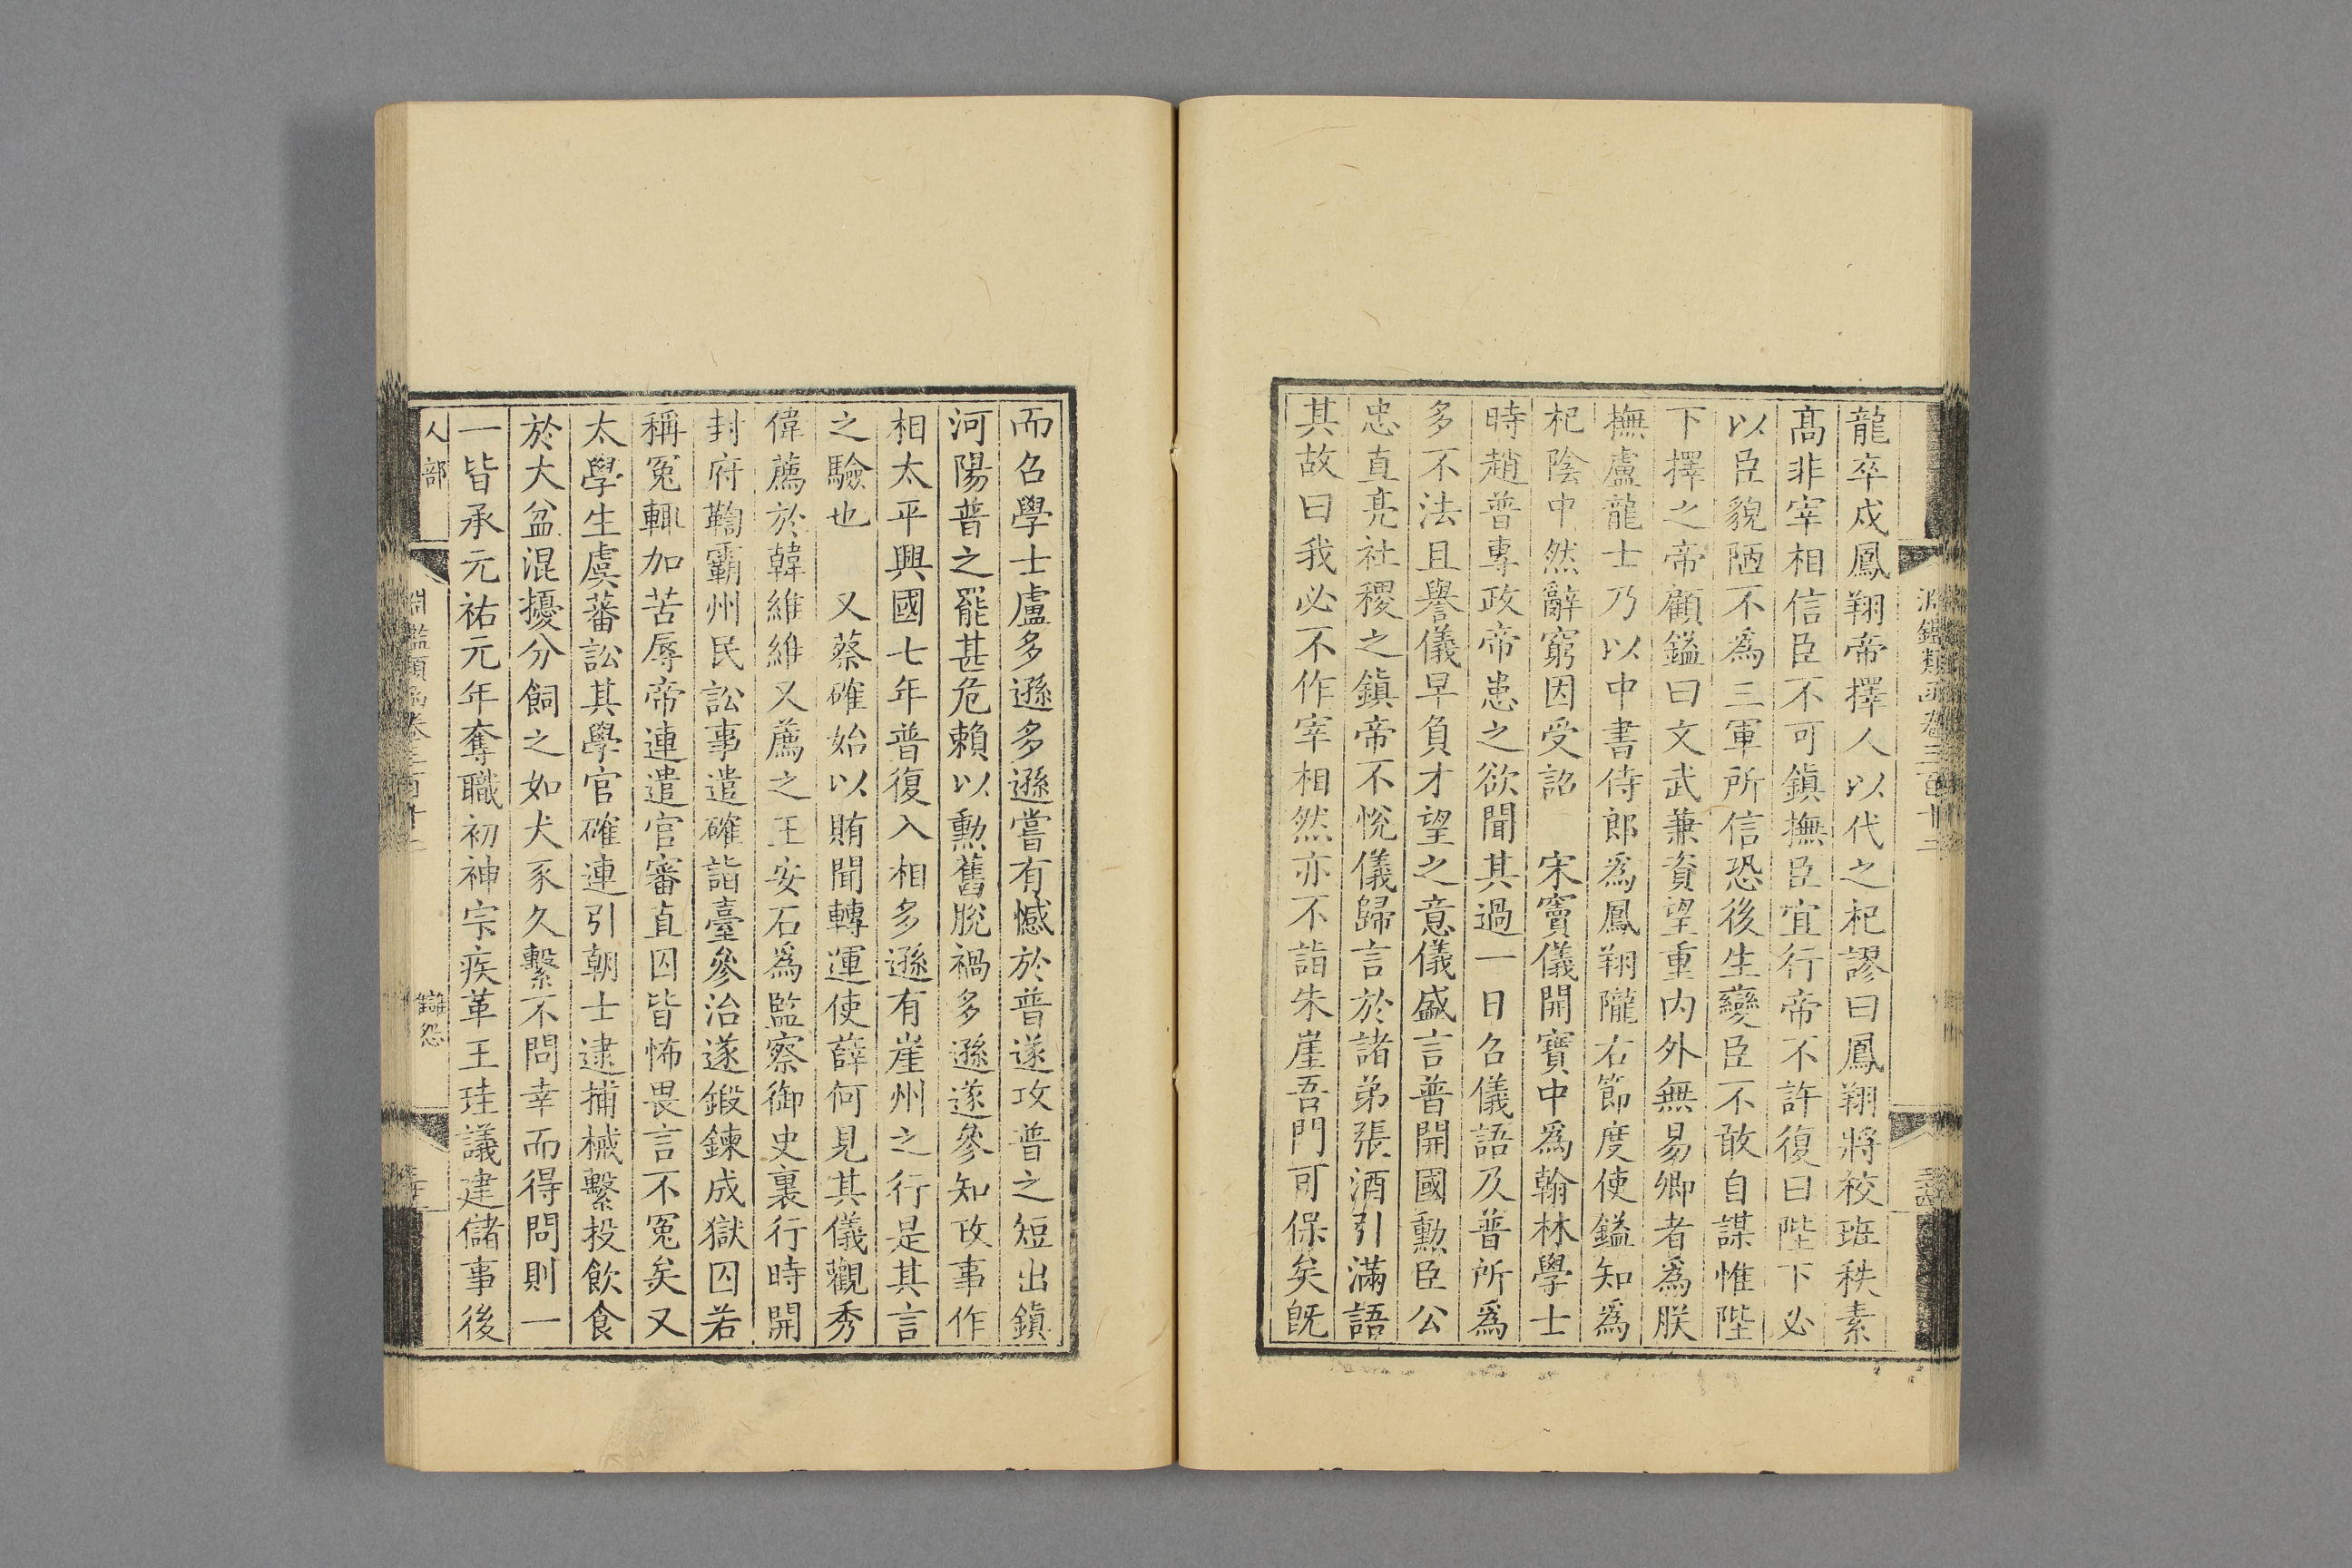 龍卒戍鳳翔帝擇人以代之杞謬曰鳳翔將校班秩素
髙非宰相信臣不可鎮撫臣宜行帝不許復曰陛下必
以臣貌陋不為三軍所信恐後生變臣不敢自謀惟陛
下擇之帝顧鎰曰文武兼資望重内外無易卿者為朕
撫盧龍士乃以中書侍郎為鳳翔隴右節度使鎰知為
杞陰中然辭窮因受詔　宋竇儀開寶中為翰林學士
時趙普專政帝患之欲聞其過一日召儀語及普所為
多不法且譽儀早負才望之意儀盛言普開國勳臣公
忠直亮社稷之鎮帝不悅儀歸言於諸弟張酒引滿語
其故曰我必不作宰相然亦不詣朱崖吾門可保矣旣
而召學士盧多遜多遜嘗有憾於普遂攻普之短出鎮
河陽普之罷甚危賴以勳舊脫禍多遜遂參知政事作
相太平興國七年普復入相多遜有崖州之行是其言
之驗也　又蔡確始以賄聞轉運使薛何見其儀觀秀
偉薦於韓維維又薦之王安石為監察御史裏行時開
封府鞫霸州民訟事遣確詣臺參治遂鍛鍊成獄囚若
稱冤輒加苦辱帝連遣官審直囚皆怖畏言不冤矣又
太學生虞蕃訟其學官確連引朝士逮捕械繫投飲食
於大盆混擾分飼之如犬豕久繫不問幸而得問則一
一皆承元祐元年奪職初神宗疾革王珪議建儲事後
人部
讎怨